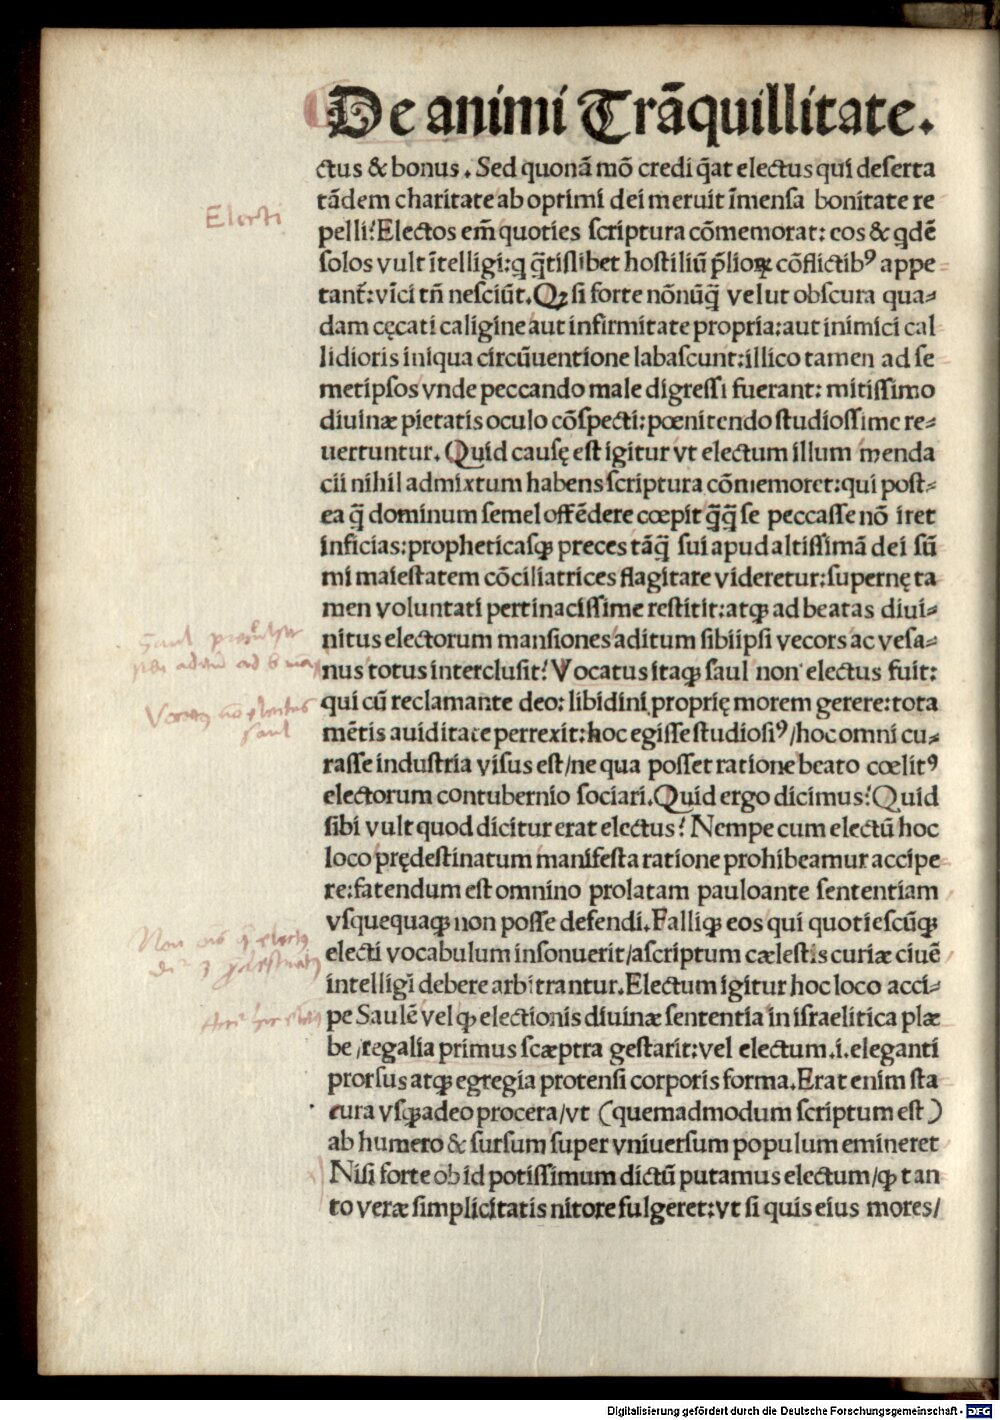 De animi Trãquillitate.
ctus & bonus. Sed quonã mõ credi q̃at electus qui deserta
tãdem charitate ab optimi dei meruit ĩmensa bonitate re
pelli? Electos em̃ quoties scriptura cõmemorat: eos & qdẽ
solos vult ĩtelligi: q q̃tislibet hostiliũ p̃lioꝝ cõflictibꝰ appe
tant᷑: vĩci tñ nesciũt. Qꝫ si forte nõnũq̃ velut obscura qua⸗
dam cęcati caligine aut infirmitate propria: aut inimici cal
lidioris iniqua circũuentione labascunt: illico tamen ad se
metipsos vnde peccando male digressi fuerant: mitissimo
diuinæ pietatis oculo cõspecti: pœnitendo studiossime re⸗
uertuntur. Quid causę est igitur vt electum illum menda
cii nihil admixtum habens scriptura cõmemoret: qui post⸗
ea q̃ dominum semel offẽdere cœpit q̃q̃ se peccasse nõ iret
inficias: propheticasqꝫ preces tãq̃ sui apud altissimã dei sũ
mi maiestatem cõciliatrices flagitare videretur: supernę ta
men voluntati pertinacissime restitit: atqꝫ ad beatas diui⸗
nitus electorum mansiones aditum sibiipsi vecors ac vesa⸗
nus totus interclusit? Vocatus itaqꝫ saul non electus fuit:
qui cũ reclamante deo: libidini proprię morem gerere: tota
mẽtis auiditate perrexit: hoc egisse studiosiꝰ/ hoc omni cu⸗
rasse industria visus est/ ne qua posset ratione beato cœlitꝰ
electorum contubernio sociari. Quid ergo dicimus? Quid
sibi vult quod dicitur erat electus? Nempe cum electũ hoc
loco prędestinatum manifesta ratione prohibeamur accipe
re: fatendum est omnino prolatam pauloante sententiam
vsquequaqꝫ non posse defendi. Falliqꝫ eos qui quotiescũqꝫ
electi vocabulum insonuerit/ ascriptum cælestis curiæ ciuẽ
intelligi debere arbitrantur. Electum igitur hoc loco acci⸗
pe Saulẽ vel qꝫ electionis diuinæ sententia in israelitica plæ
be/ regalia primus scæptra gestarit: vel electum .i. eleganti
prorsus atqꝫ egregia protensi corporis forma. Erat enim sta
cura vsqꝫadeo procera/ vt (quemadmodum scriptum est)
ab humero & sursum super vniuersum populum emineret
Nisi forte ob id potissimum dictũ putamus electum/ qꝫ tan
to veræ simplicitatis nitore fulgeret: vt si quis eius mores/
Electi
saul
Digitalisierung gefördert durch die Deutsche Forschungsgemeinschaft - DFG